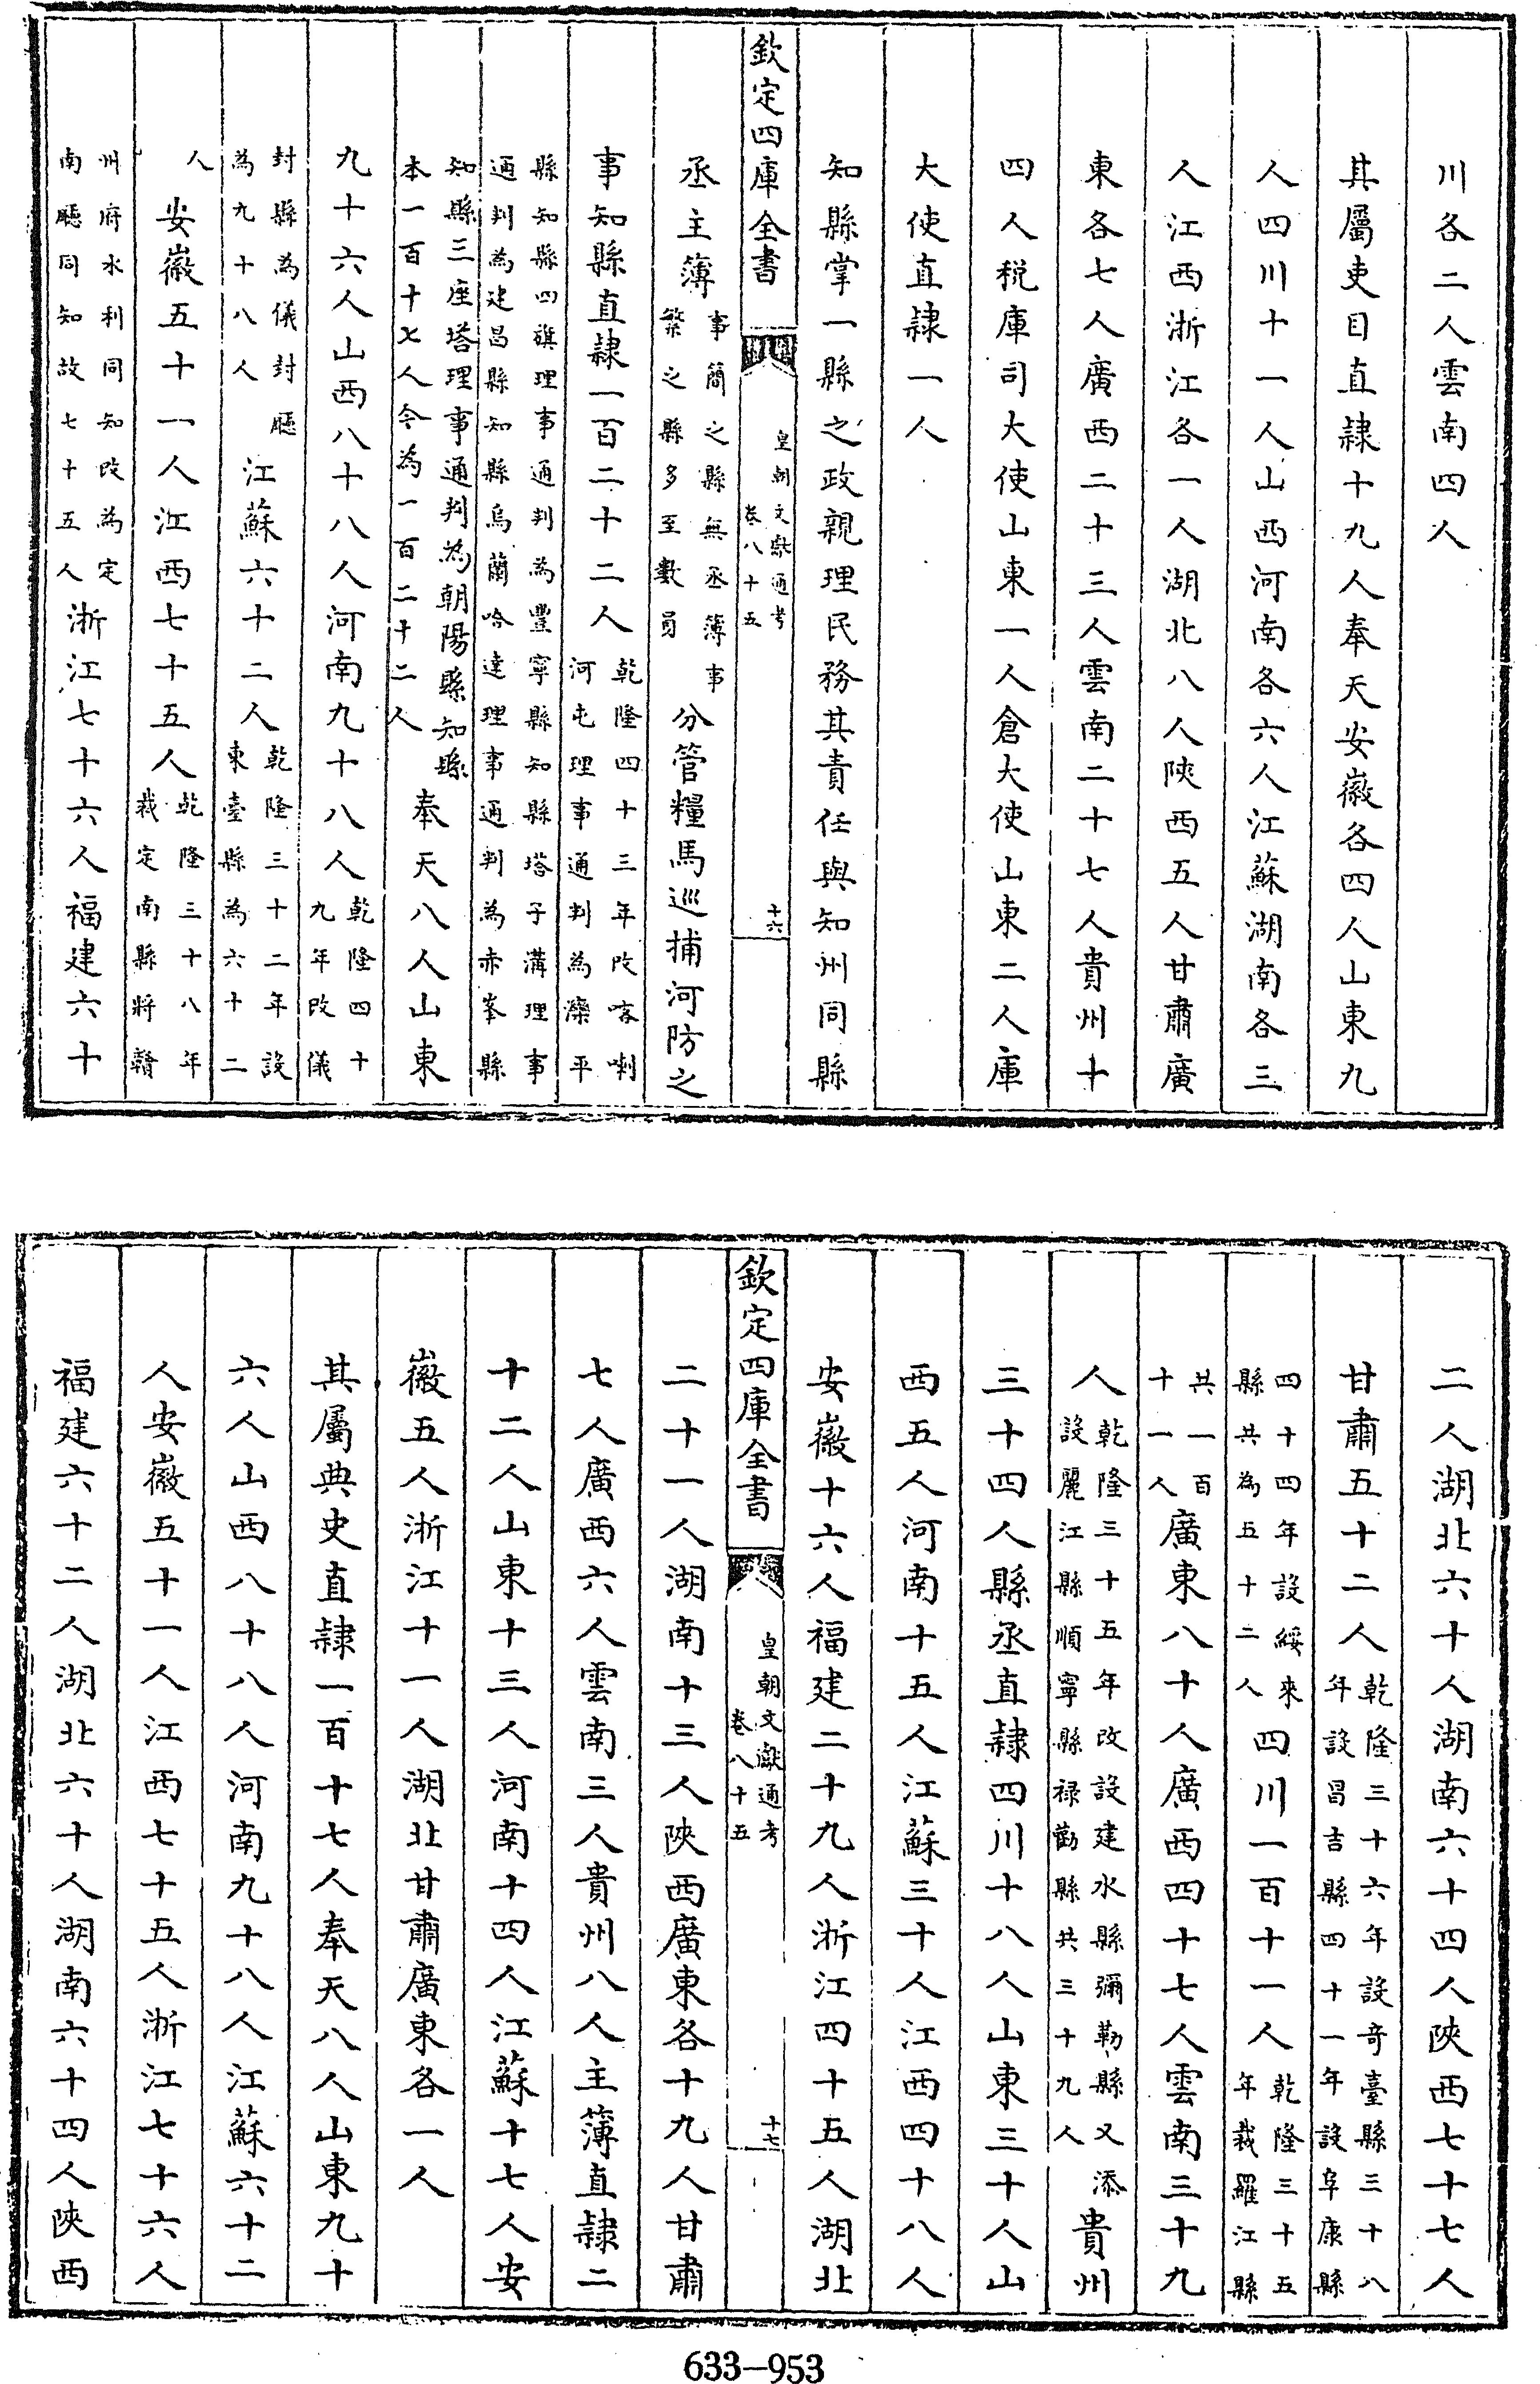 川各二人雲南四人
其屬吏目直隷十九人奉天安徽各四人山東九
人四川十一人山西河南各六人江蘇湖南各三
人江西浙江各一人湖北八人陜西五人甘肅廣
東各七人廣西二十三人雲南二十七人貴州十
四人税庫司大使山東一人倉大使山東二人庫
大使直隷一人
知縣掌一縣之政親理民務其責任與知州同縣
欽定四庫全書
皇朝文獻通考
卷八十五
十六
丞主簿
事簡之縣無丞簿事
繁之縣多至數員
分管糧馬巡捕河防之
事知縣直隷一百二十二人
乾隆四十三年改喀喇
河屯理事通判為灤平
縣知縣四旗理事通判為豐寧縣知縣塔子溝理事
通判為建昌縣知縣烏蘭哈達理事通判為赤峯縣
知縣三座塔理事通判為朝陽縣知縣
本一百十七人今為一百二十二人
奉天八人山東
九十六人山西八十八人河南九十八人
乾隆四十
九年改儀
封縣為儀封廳
為九十八人
江蘇六十二人
乾隆三十二年設
東臺縣為六十二
人
安徽五十一人江西七十五人
乾隆三十八年
裁定南縣將贛
州府水利同知改為定
南廳同知故七十五人
浙江七十六人福建六十
二人湖北六十人湖南六十四人陜西七十七人
甘肅五十二人
乾隆三十六年設奇臺縣三十八
年設昌吉縣四十一年設阜康縣
四十四年設綏來
縣共為五十二人
四川一百十一人
乾隆三十五
年裁羅江縣
共一百
十一人
廣東八十人廣西四十七人雲南三十九
人
乾隆三十五年改設建水縣彌勒縣又添
設麗江縣順寧縣祿勸縣共三十九人
貴州
三十四人縣丞直隷四川十八人山東三十人山
西五人河南十五人江蘇三十人江西四十八人
安徽十六人福建二十九人浙江四十五人湖北
欽定四庫全書
皇朝文獻通考
卷八十五
十七
二十一人湖南十三人陜西廣東各十九人甘肅
七人廣西六人雲南三人貴州八人主簿直隷二
十二人山東十三人河南十四人江蘇十七人安
徽五人浙江十一人湖北甘肅廣東各一人
其屬典史直隷一百十七人奉天八人山東九十
六人山西八十八人河南九十八人江蘇六十二
人安徽五十一人江西七十五人浙江七十六人
福建六十二人湖北六十人湖南六十四人陜西
633-953